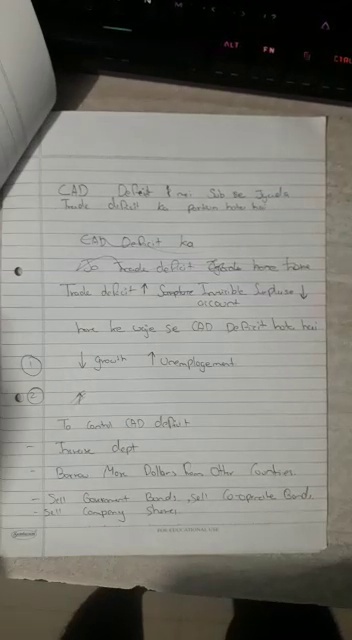 ALT FN CTRL
CAD Deficit me Sub se Jyada
Trade deficit ka hota hai
CAD Deficit ka
Trade deficit hone
Trade deficit ↑ Invisible Surpluse ↓
account
hone ke waje se CAD Deficit hota hai
① ↓ growth ↑ Unemplogement
② ↑
To control CAD deficit
- dept
- Borrow More Dollars from Other Countries
- Sell Government Bonds, Sell Co-operate Bonds
- Sell Company Shares
FOR EDUCATIONAL USE